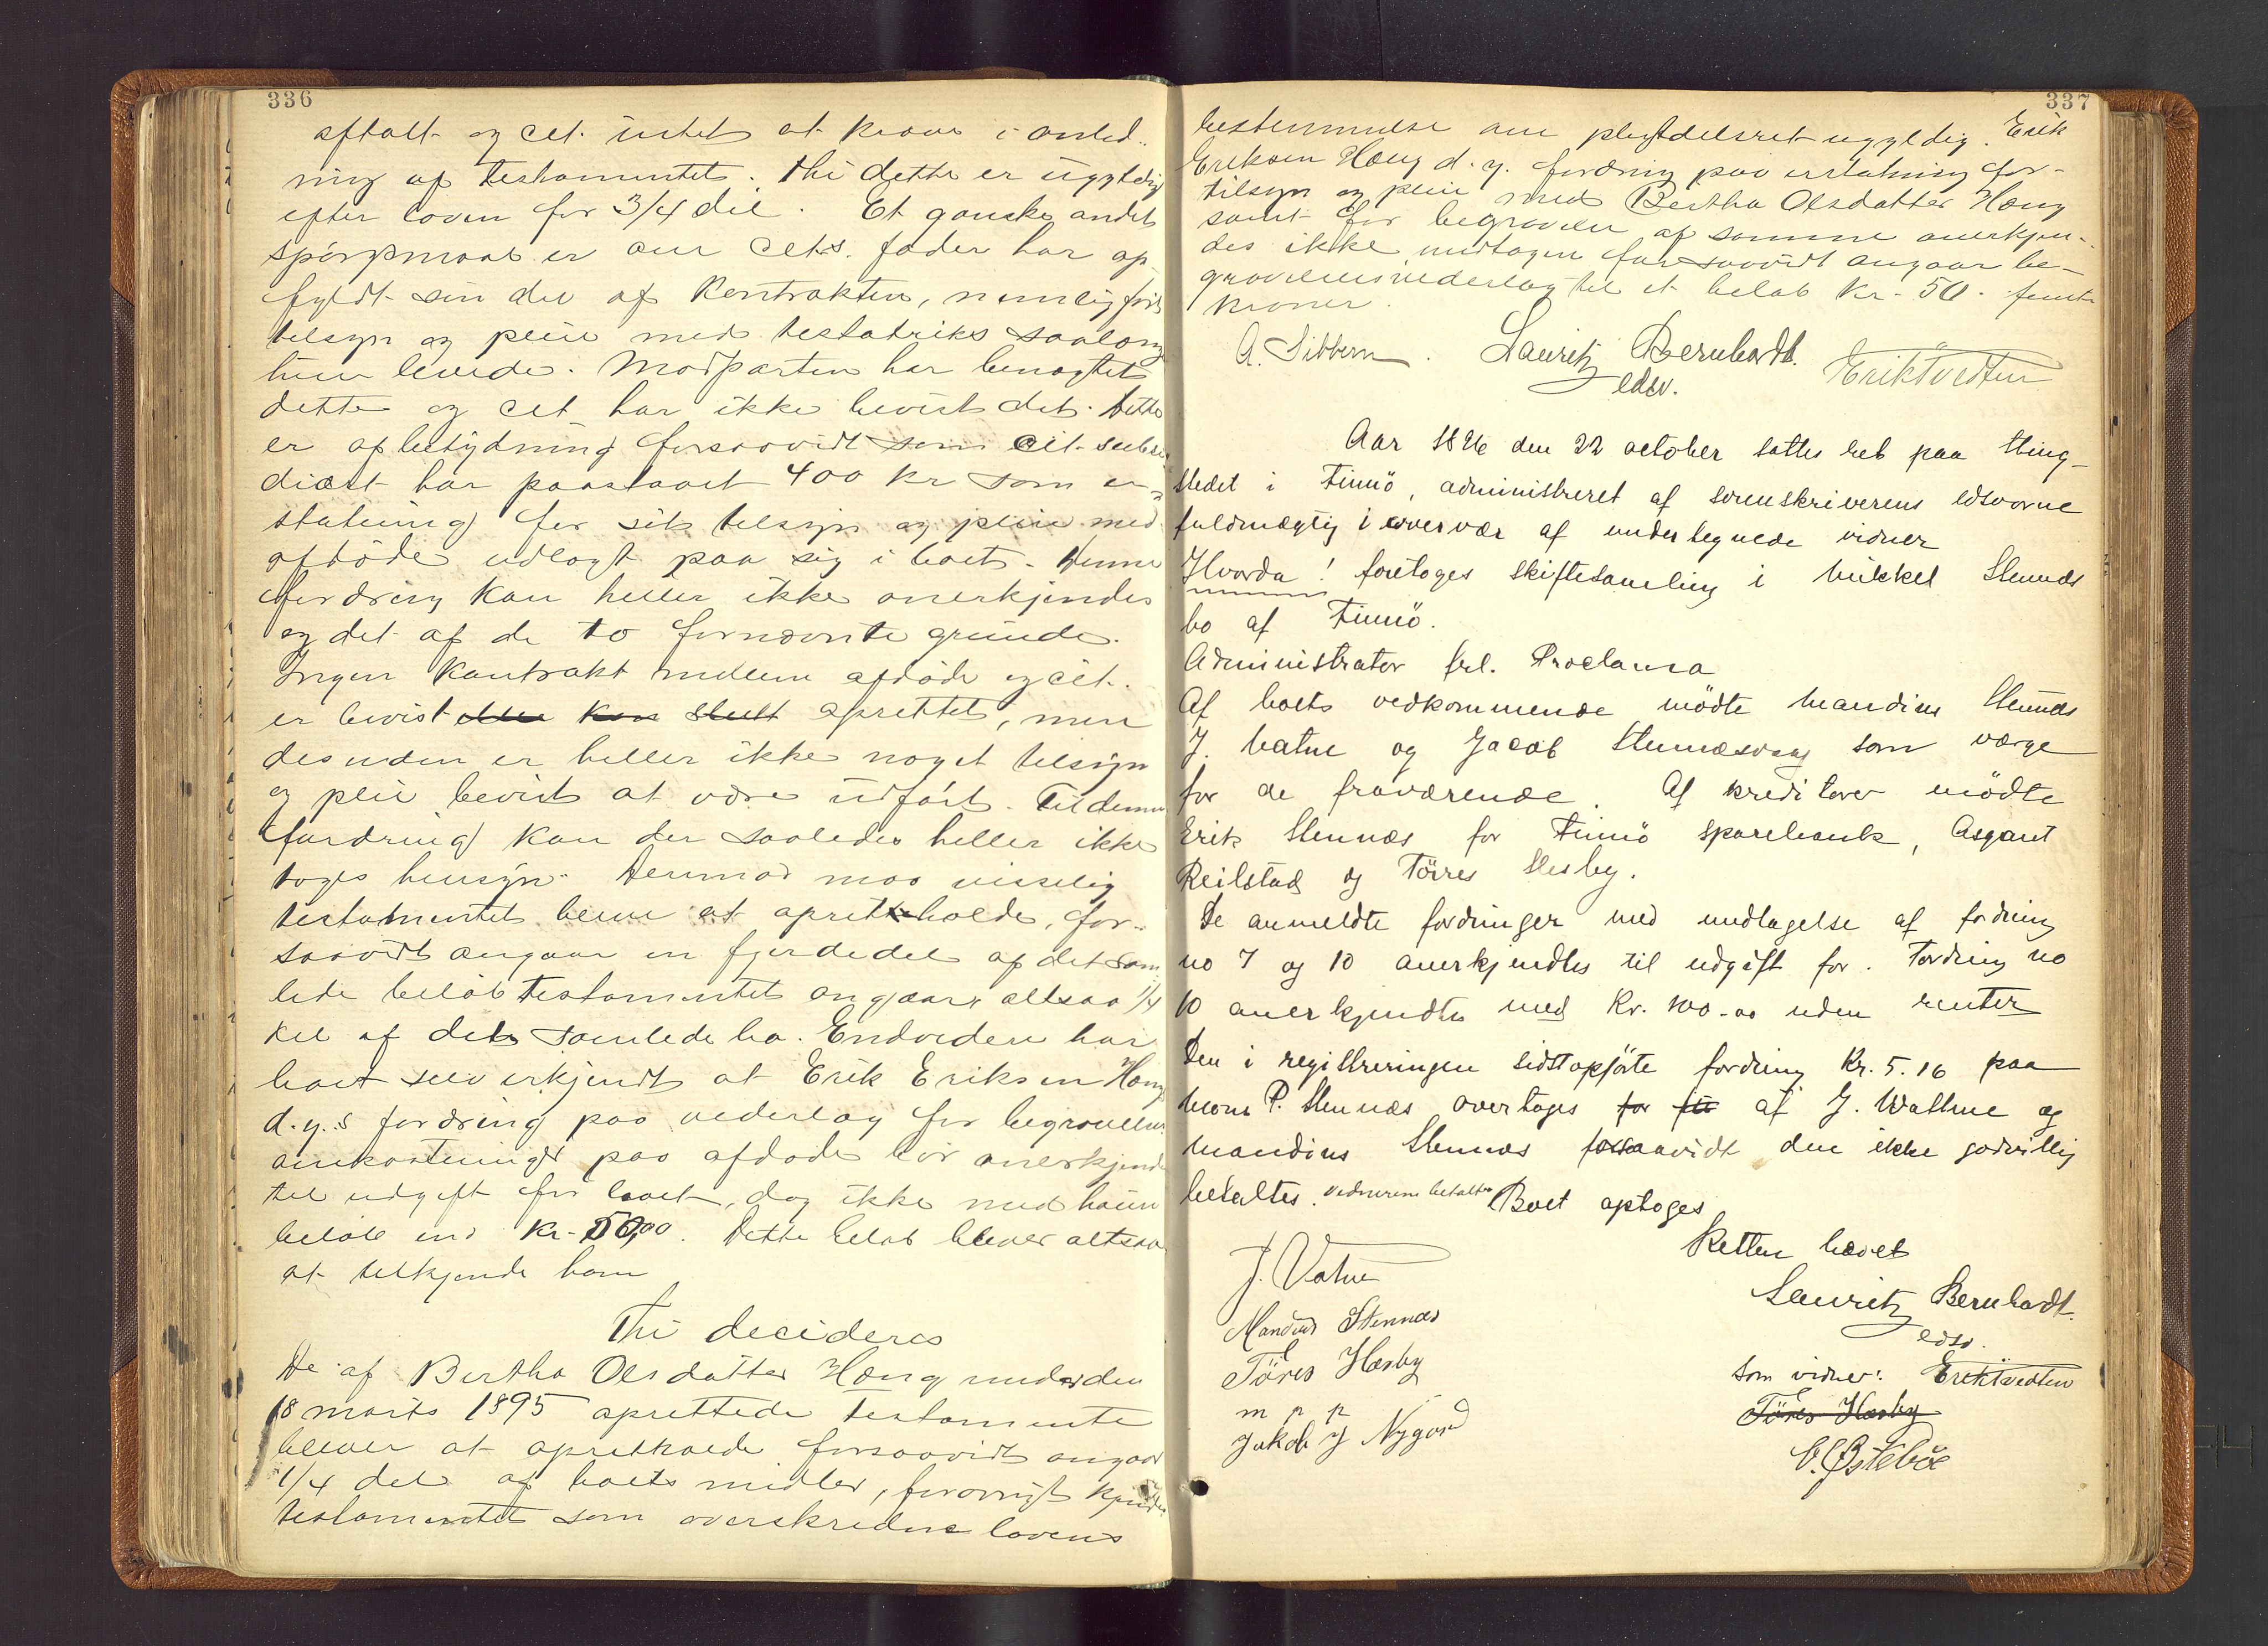 336
aftalt og cet. intet at kræve i anled-
ning af testamentet. Thi dette er ugyldig
efter loven for 3/4 del. Et ganske andet
spørgsmaal er om Cets. fader har op-
fyldt sin del af kontrakten, nemlig ført
tilsyn og pleie med testatriks saalænge
hun levede. Modparten har benægtet
dette og cet har ikke bevist det. Dette
er af betydning forsaavidt som cit. subsi-
diært har paastaaet 400 kr som er-
statning for sit tilsyn og pleie med
afdøde udlagt paa sig i boet. Denne
fordring kan heller ikke anerkjendes
og det af de to fornævnte grunde.
Ingen kontrakt mellem afdøde og cit.
er bevist eller kan skult oprettet, men
desuden er heller ikke noget tilsyn
og pleie bevist at være udført. Til denne
fordring kan der saaledes heller ikke
tages hensyn. Derimod maa visselig
testamentet blive at opretholde, for-
saavidt angaar en fjerdedel af det sam
lede beløb testamentet angaar, altsaa 1/4
del af det samlede bo. Endvidere har
boet selv erkjendt at Erik Eriksen Hæng
d.y.s fordring paa vederlag for begravelses
omkostninger paa afdøde bør anerkjendes
til udgift for boet, dog ikke med høiere
beløb end Kr. 50,00. Dette beløb bliver altsaa
at tilkjende ham
Thi decideres
De af Bertha Olsdatter Hæng under den
18 marts 1895 oprettede testamente
bliver at opretholde forsaavidt angaar
1/4 del af boets midler, forøvrigt kjendes
testamentet som overskridene lovens
337
bestemmelse om pligtdelsret ugyldig. Erik
Eriksen Hæng d. y. fordring paa erstatning for
tilsyn og pleie med Bertha Olsdatter Hæng
samt for begravelse af samme anerkjen-
des ikke, undtagen forsaavidt angaar be-
gravelsesvederlag til et beløb Kr. 50. femti
kroner.
A. Sibbern. Lauritz Bernhardt. Erik Tvedten
edsv.
Aar 1896 den 22 october sattes ret paa thing-
stedet i Finnö, administreret af sorenskriverens edsvorne
fuldmægtig i overvær af undertegnede vidner
Hvorda! foretoges skiftesamling i Mikkel Stennæs
bo af Finnö.
Administrator frl. Proclama
Af boets vedkommende mödte Mandius Stennæs
J. Vatne og Jacob Stennæsvaag som værge
for de fraværende. Af kreditorer mödte
Erik Stennæs for Finnö sparebank, Asgaut
Reilstad og Törres Hesby.
De anmeldte fordringer med undtagelse af fordring
no 7 og 10 anerkjendtes til udgift for. Fordring no
10 anerkjendtes med Kr. 100.00 uden renter
Den i registreringen sidstopførte fordring Kr. 5.16 paa
Mons P. Stennæs overtoges for fti af J. Wathne og
Mandius Stennæs forsaavidt den ikke godvillig
betaltes. Vidnerne betaltes Boet optoges
Retten hævet
Lauritz Bernhardt.
edsv.
J. Vatne
Mandius Stennæs
Töres Hesby
m p p
Jakob J Nygård
Som vidner: Erik Tvedten
Töres Hesby
O. Østebøe